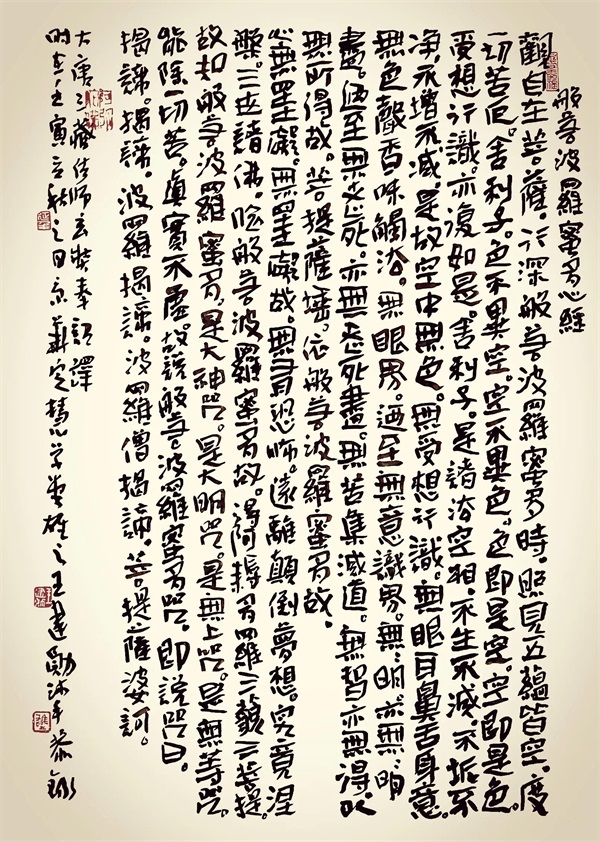 般若波羅蜜多心經
觀自在菩薩。行深般若波羅蜜多時。照見五蘊皆空。度
一切苦厄。舍利子。色不異空。空不異色。色即是空。空即是色。
受想行識。亦復如是。舍利子。是諸法空相。不生不滅。不垢不
净。不增不減。是故空中無色。無受想行識。無眼耳鼻舌身意。
無色聲香味觸法。無眼界。迺至無意識界。無無明。亦無無明
盡。迺至無老死。亦無老死盡。無苦集滅道。無智亦無得。以
無所得故。菩提薩埵。依般若波羅蜜多故。
心無罣礙。無罣礙故。無有恐怖。遠離顛倒夢想。究竟涅
槃。三世諸佛。依般若波羅蜜多故。得阿耨多羅三藐三菩提。
故知般若波羅蜜多。是大神咒。是大明咒。是無上咒。是無等咒。
能除一切苦。真實不虛。故說般若波羅蜜多咒。即說咒曰。
揭諦。揭諦。波羅揭諦。波羅僧揭諦。菩提薩婆訶。
大唐三藏法師玄奘奉詔譯
時在壬寅立秋之日京華定慧學堂雄之王建勛沐手恭錄